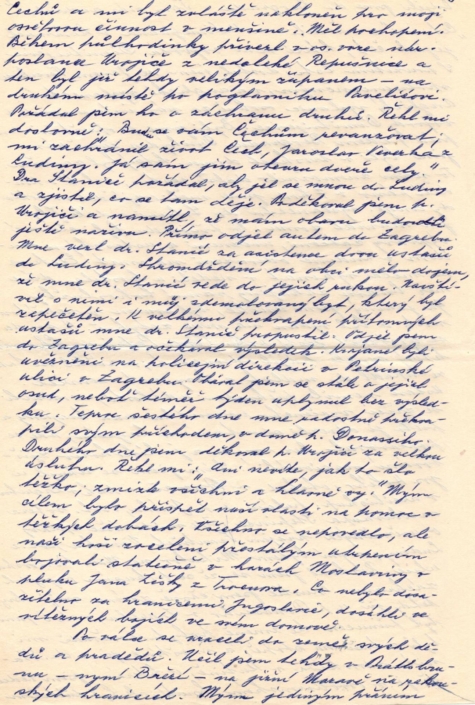 Čechů a mi byl zvláště nakloněn pro moji
osvětovou činnost v menšině. Měl pochopení.
Během půlhodinky přivezl v os. voze
poslance Vrojiće z nedaleké Repušnice a
ten byl již tehdy velikým županem – na
druhém místě po poglavniku Paveličovi.
Požádal jsem ho o záchranu druhů. Řekl mi
doslovně: „Budu se vám Čechům revanžovat,
mi zachránil život Čech, Jaroslav Peverka z
Ludiny. Já sám jim otevru dveře cely.“
Dra Staniće požádal, aby jel se mnou do Ludiny
a zjistil, co se tam děje. Poděkoval jsem p.
Vrojići a namítl, že mám obavu budou-li
ještě naživu. Přímo odjel autem do Zagrebu.
Mne vezl dr. Stanić za asistence dvou ustašů
do Ludiny. Shromáždění na obci mělo dojem,
že mne dr. Stanić vede do jejich rukou. Navští-
vil s nimi i můj zdemolovaný byt, který byl
zapečetěn. K velkému překvapení přítomných
ustašů mne dr. Stanić propustil. Odjel jsem
do Zagrebu a očekával výsledek. Krajané byli
uvězněni na policejní direkcii v Petrinské
ulici v Zagrebu. Obával jsem se stále o jejich
osud, neboť téměř týden uplynul bez výsled-
ku. Teprve šestého dne mne radostně překva-
pili svým příchodem, v domě p. Donassiho.
Druhého dne jsem děkoval p. Vrojići za velkou
úsluhu. Řekl mi: „Ani nevíte, jak to šlo
těžko, zmizte všichni a hlavně vy.“ Mým
cílem bylo přispět naší vlasti na pomoc v
těžkých dobách. Všechno se nepovedlo, ale
naši hoši zoceleni přestálým utrpením
bojovali statečně v horách Moslaviny v
pluku Jana Žižky z Trocnova. Co nebylo dosa-
žitelno za hranicemi Jugoslavie, dosáhli ve
vítězných bojích ve svém domově.
Po válce se vraceli do země svých dě-
dů a pradědů. Učil jsem tehdy v
– nyní Březí – na jižní Moravě na rakou-
ských hranicích. Mým jediným přáním